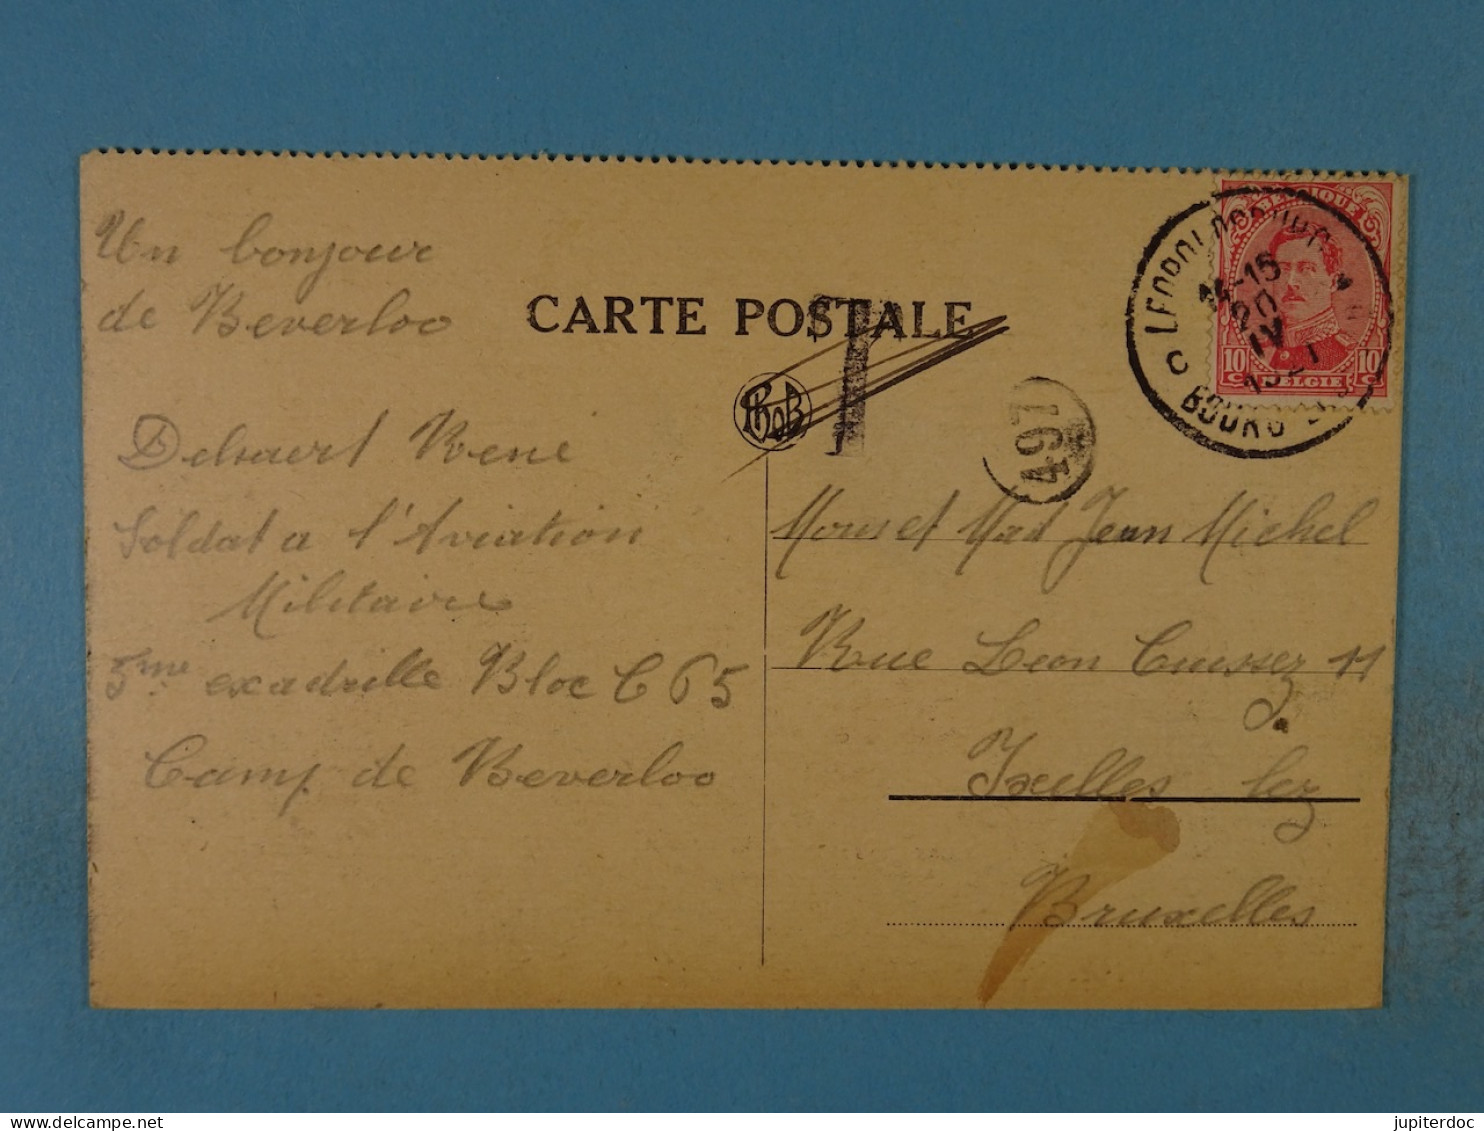 Un bonjour
de Beverloo
CARTE POSTALE
T
ThoB
497
BELGIQUE
14-15
20
IV
1921
BOURG
10 C BELGIE 10 C
René
Soldat a l'Aviation
Militaire
5me exadrille Bloc C 65
Camp. de Beverloo
Mons et Mad Jean Michel
Rue Leon Cuissez 11
Ixelles lez
Bruxelles
jupiterdoc